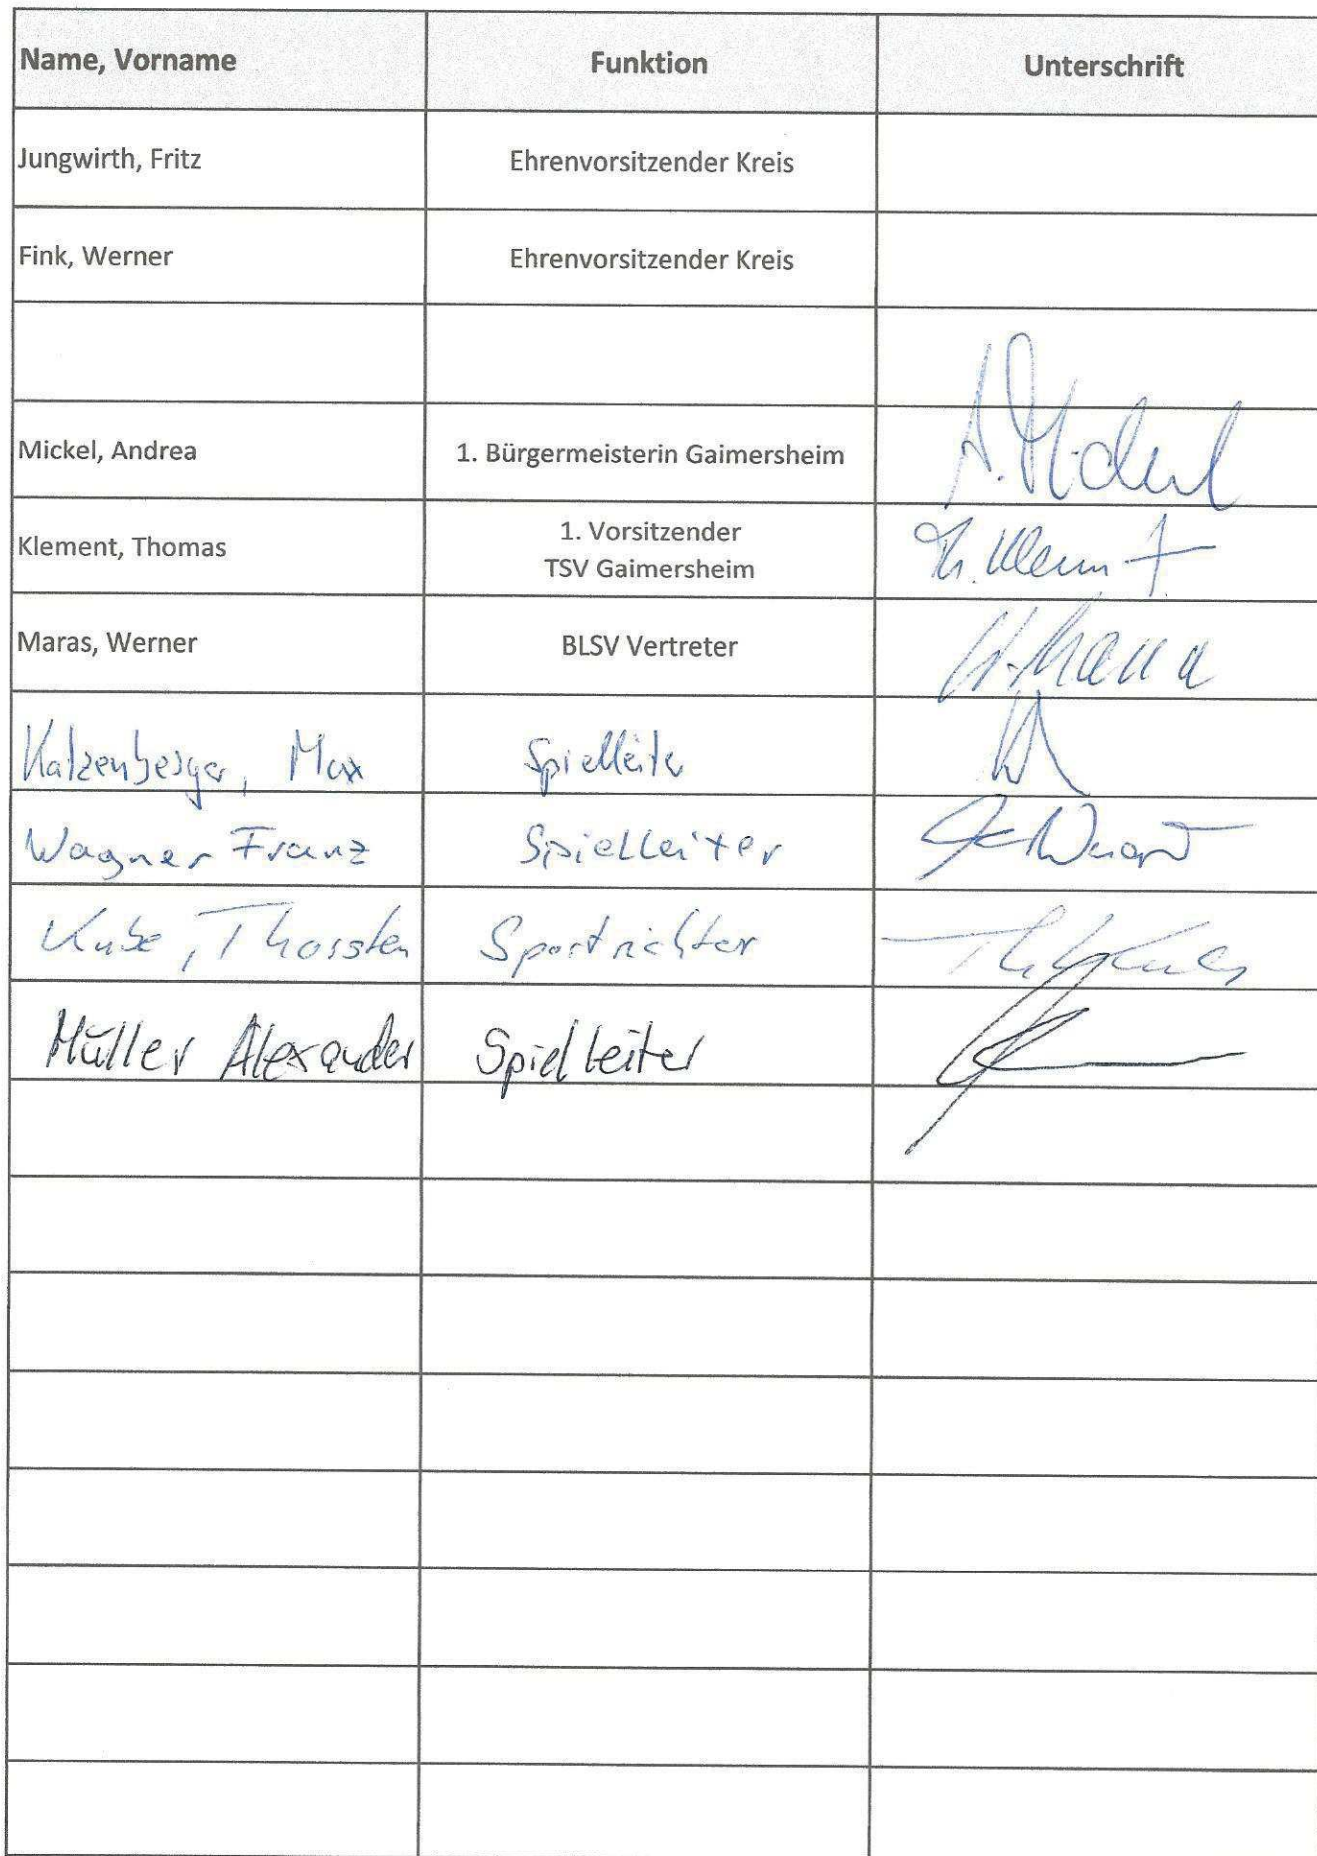 Name, Vorname Funktion Unterschrift
Jungwirth, Fritz Ehrenvorsitzender Kreis
Fink, Werner Ehrenvorsitzender Kreis
Mickel, Andrea 1. Bürgermeisterin Gaimersheim A. Mickel
Klement, Thomas 1. Vorsitzender
TSV Gaimersheim Th. Klement
Maras, Werner BLSV Vertreter
Katzenberger, Max Spielleiter
Wagner Franz Spielleiter
Kube, Thorsten Sportrichter
Müller Alexander Spielleiter